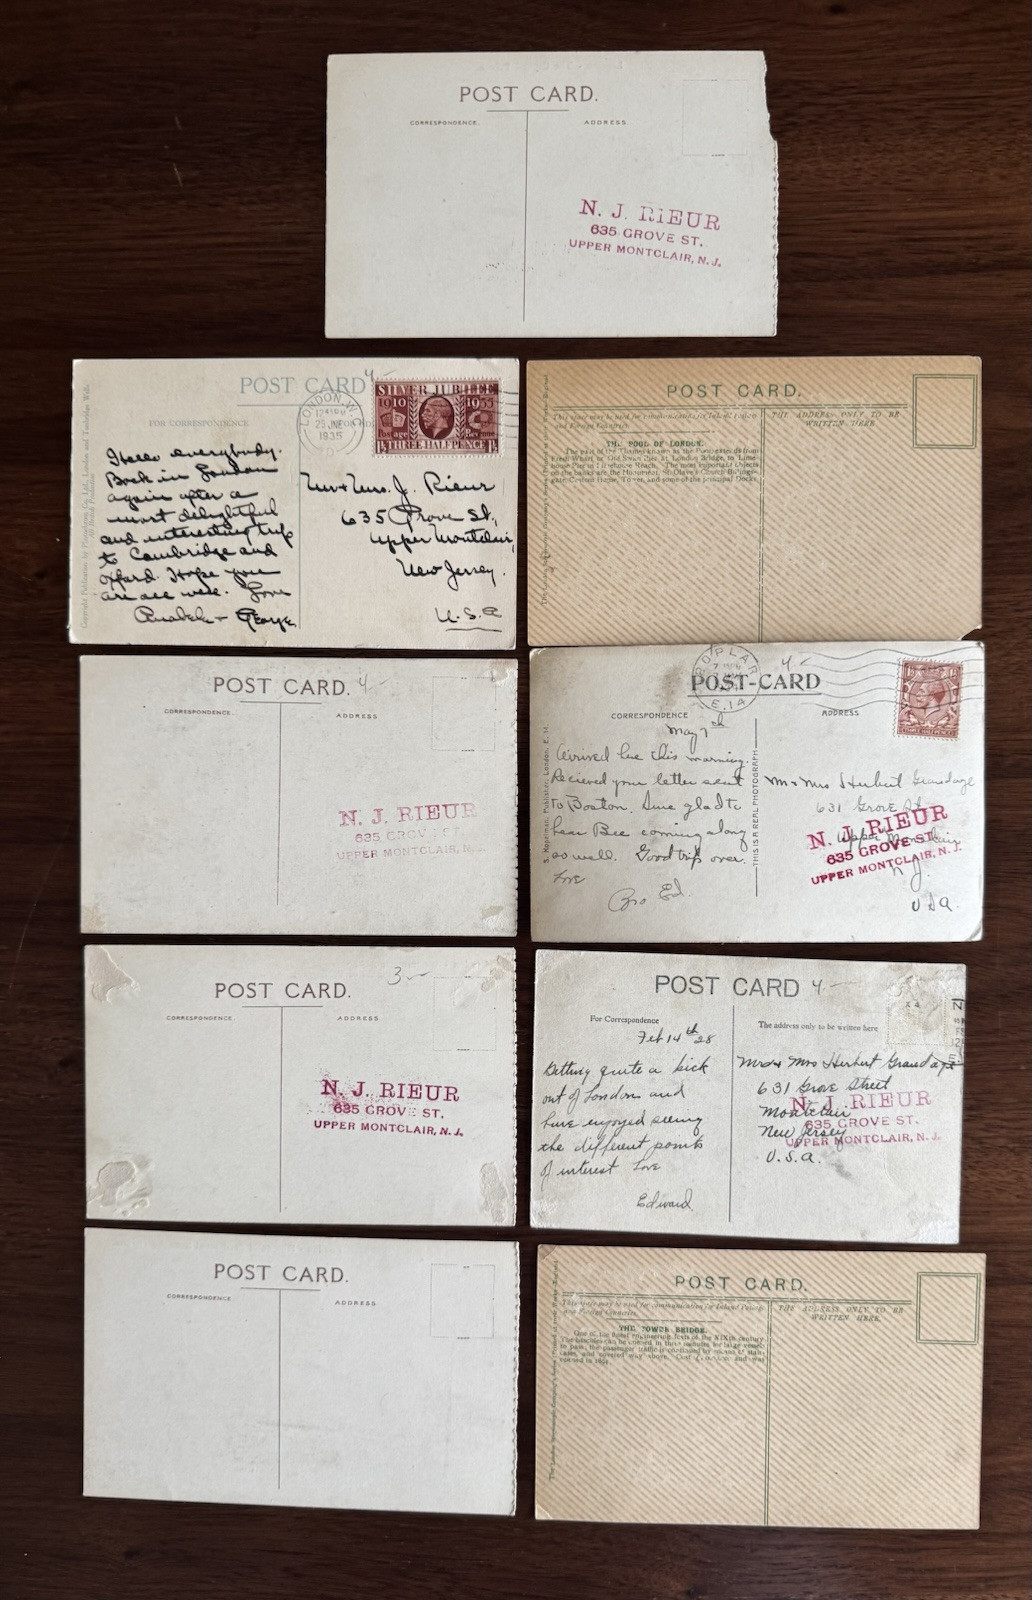 POST CARD.
CORRESPONDENCE.
ADDRESS.
N. J. RIEUR
635 GROVE ST.
UPPER MONTCLAIR, N. J.
POST CARD
4-
FOR CORRESPONDENCE
LONDON.W.
1935
SILVER JUBILEE
1910 1935
Postage Revenue
1½ THREE HALFPENCE 1½
Hello everybody.
Back in London
again after a
most delightful
and interesting trip
to Cambridge and
Oxford. Hope you
are all well. Love
George
Mr & Mrs. J. Rieur
635 Grove St.,
Upper Montclair,
New Jersey.
U.S.A
POST CARD.
This space may be used for communication
THE ADDRESS ONLY TO BE
WRITTEN HERE
THE POOL OF LONDON.
POST CARD.
4-
CORRESPONDENCE.
ADDRESS
N. J. RIEUR
635 GROVE ST.
UPPER MONTCLAIR, N. J.
POPLAR
E.14
4-
POST-CARD
CORRESPONDENCE
ADDRESS
THREE HALFPENCE
S. Kopelman, Publisher, London, E. 14
THIS IS A REAL PHOTOGRAPH
May 7th
Arrived here this morning.
Recieved your letter sent
to Boston. Sure glad to
hear Bee coming along
so well. Good trip over.
Love
Bro Ed.
Mr & Mrs Herbert
631 Grove St
Upper Montclair
N. J.
U S A.
N. J. RIEUR
635 GROVE ST.
UPPER MONTCLAIR, N. J.
3-
POST CARD.
CORRESPONDENCE.
ADDRESS.
N. J. RIEUR
635 GROVE ST.
UPPER MONTCLAIR, N. J.
POST CARD
4-
X 4
For Correspondence
The address only to be written here
Feb 14th 28
Getting quite a kick
out of London and
have enjoyed seeing
the different points
of interest Love
Edward
Mr & Mrs Herbert
631 Grove Street
Montclair
New Jersey
U.S.A.
N. J. RIEUR
635 GROVE ST.
UPPER MONTCLAIR, N. J.
POST CARD.
CORRESPONDENCE.
ADDRESS
POST CARD.
This space may be used for communication for Inland Postage
and Foreign Countries.
THE ADDRESS ONLY TO BE
WRITTEN HERE.
THE TOWER BRIDGE.
One of the finest engineering feats of the XIXth century.